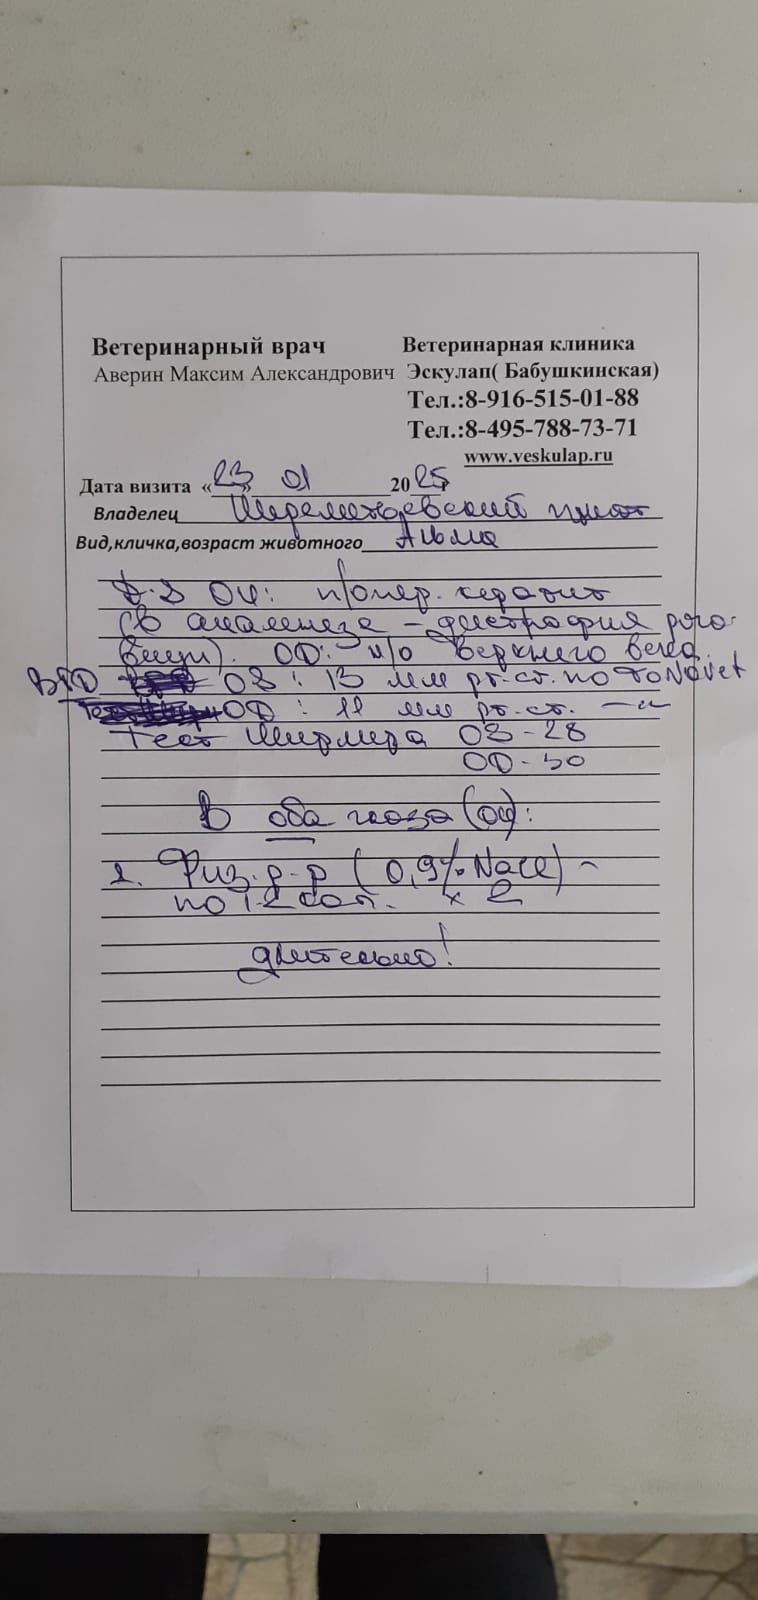 Ветеринарный врач
Аверин Максим Александрович
Ветеринарная клиника
Эскулап( Бабушкинская)
Тел.:8-916-515-01-88
Тел.:8-495-788-73-71
www.veskulap.ru
Дата визита «23» 01 2025г
Владелец Шереметьевский приют
Вид,кличка,возраст животного Альма
D.S OU: п/опер. кератит
(в анамнезе - дистрофия рого-
вицы). OD: н/о верхнего века.
ВГД OS: 13 мм рт.ст. по Tonovet
OD: 11 мм рт.ст. –"
Тест Ширмера OS-28
OD-30
В оба глаза (OU):
1. Физ. р-р (0,9% NaCl) -
по 1-2 кап. х 2
длительно!